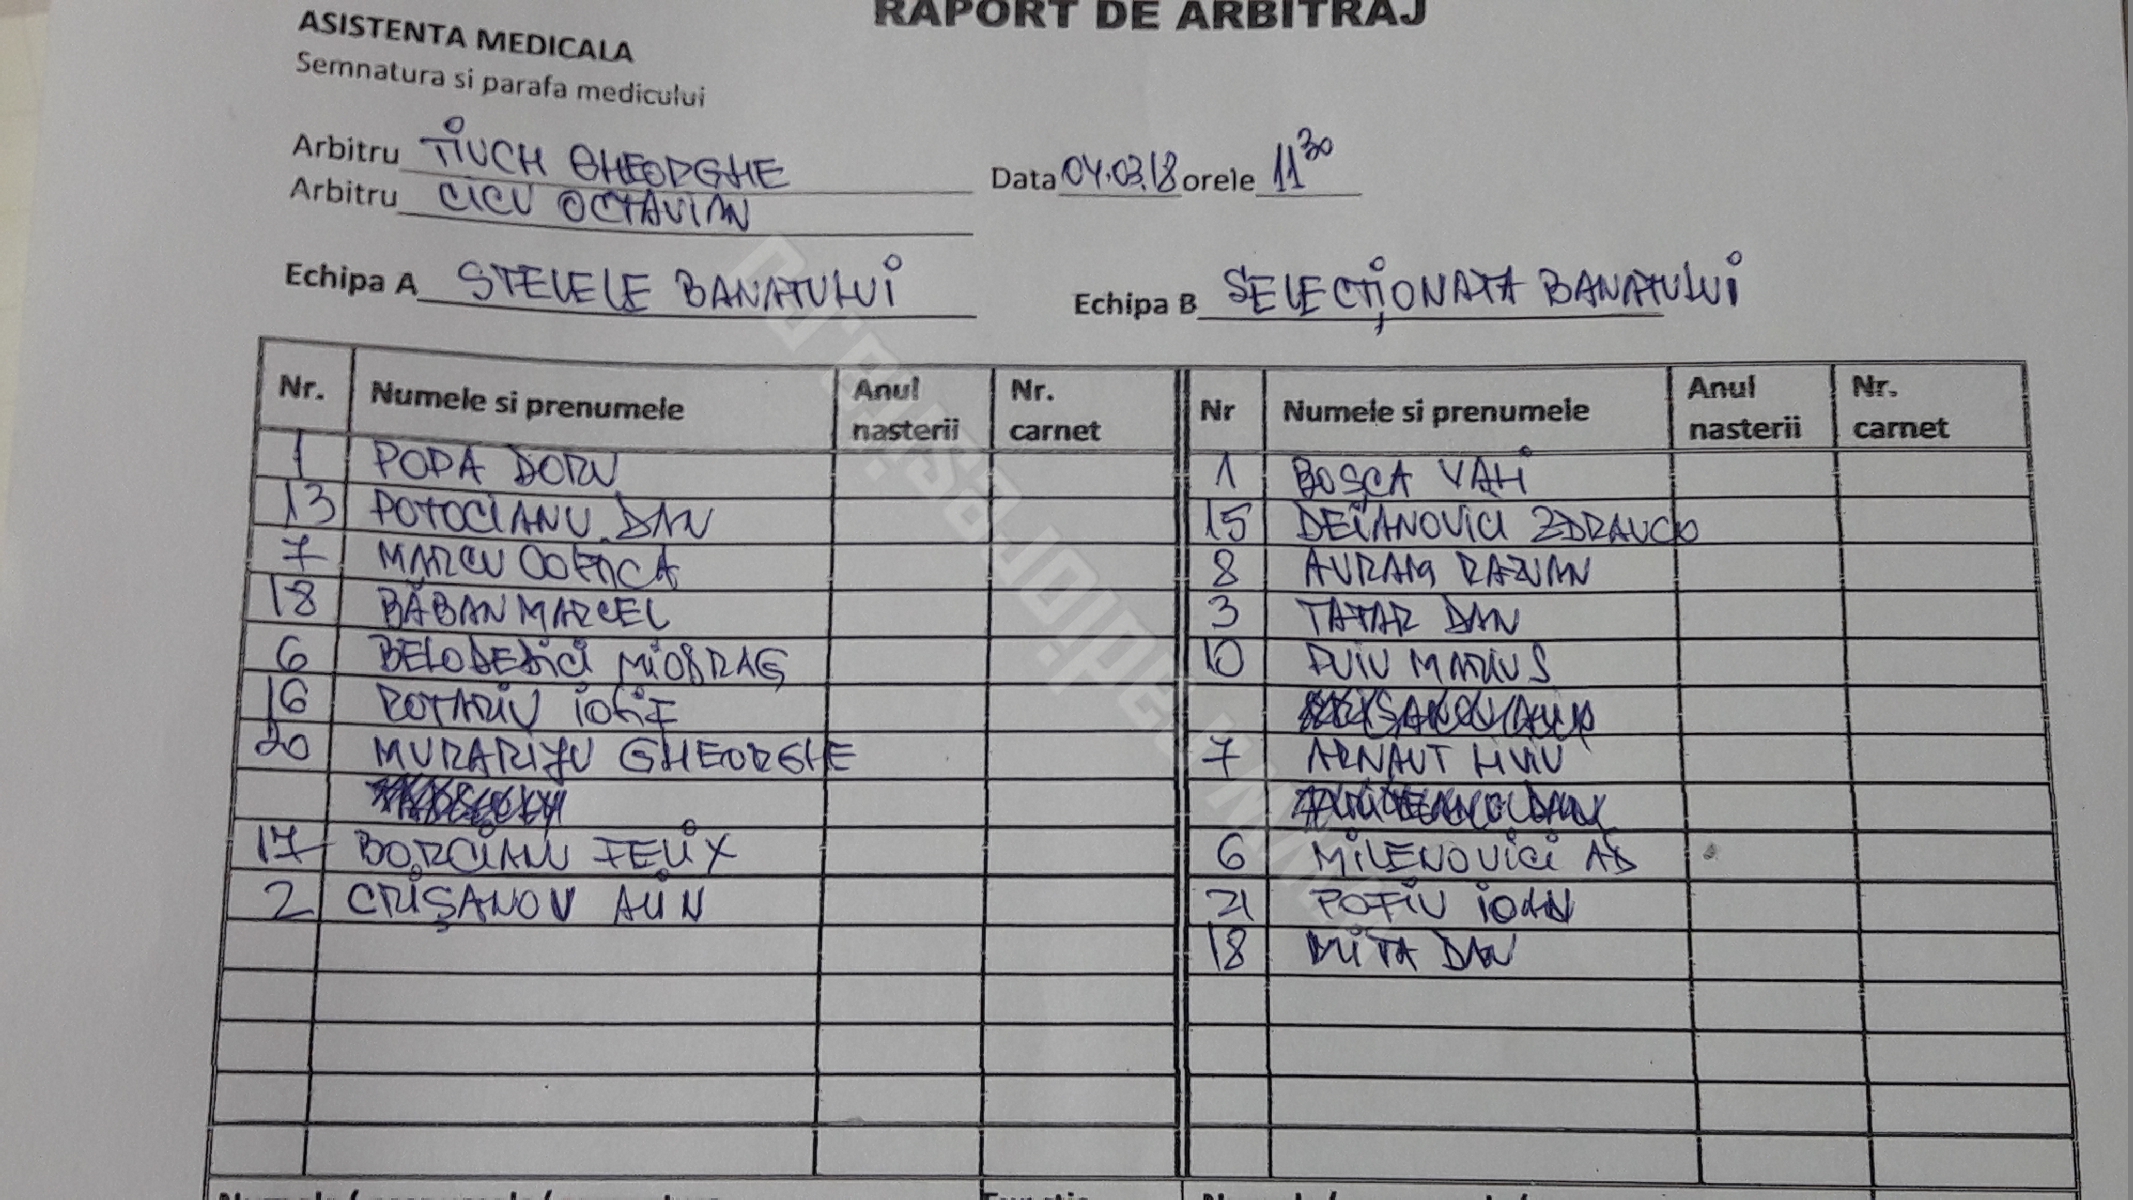 RAPORT DE ARBITRAJ
ASISTENTA MEDICALA
Semnatura si parafa medicului
Arbitru TIUCH GHEORGHE Data 04.03.18 orele 11 30
Arbitru CICU OCTAVIAN
Echipa A STELELE BANATULUI Echipa B SELECȚIONATA BANATULUI
Nr. Numele si prenumele Anul nasterii Nr. carnet Nr Numele si prenumele Anul nasterii Nr. carnet
1 POPA DORU 1 BOȘCA VALI
13 POTOCIANU DAN 15 DEIANOVICI ZDRAVCO
7 MARCU 8 AVRAM RAZVAN
18 BĂBAN MARCEL 3 TATAR DAN
6 BELODEDICI MIODRAG 10 MARIUS
16 ROTARIU IOSIF
20 MURARIJU GHEORGHE 7 ARNĂUT LIVIU
17 BORCIANU FELIX 6 MILENOVICI AD
2 CRIȘANOV ALIN 21 IOAN
18 MITA DAN
www.radioresita.ro